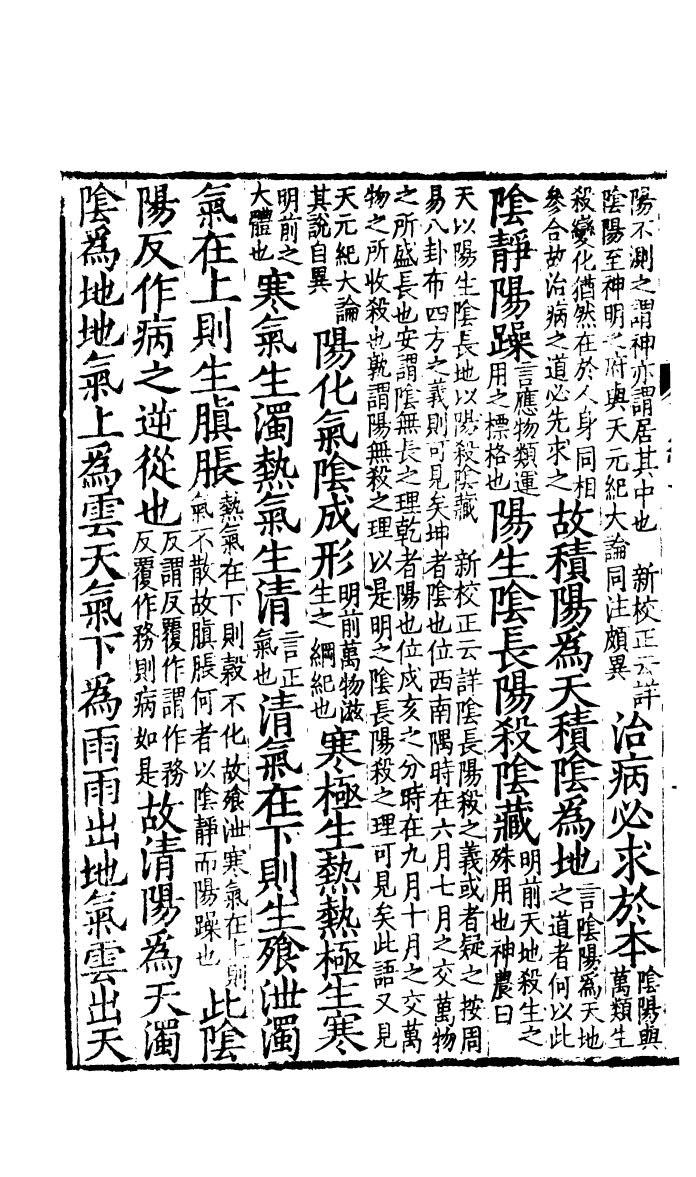 陽不測之謂神亦謂居其中也　新校正云詳
陰陽至神明之府與天元紀大論同注頗異
治病必求於本
陰陽與
萬類生
殺變化猶然在於人身同相
參合故治病之道必先求之
故積陽爲天積陰爲地
言陰陽爲天地
之道者何以此
陰靜陽躁
言應物類運
用之標格也
陽生陰長陽殺陰藏
明前天地殺生之
殊用也神農曰
天以陽生陰長地以陽殺陰藏　新校正云詳陰長陽殺之義或者疑之按周
易八卦布四方之義則可見矣坤者陰也位西南隅時在六月七月之交萬物
之所盛長也安謂陰無長之理乾者陽也位戌亥之分時在九月十月之交萬
物之所收殺也孰謂陽無殺之理以是明之陰長陽殺之理可見矣此語又見
天元紀大論
其說自異
陽化氣陰成形
明前萬物滋
生之綱紀也
寒極生熱熱極生寒
明前之
大體也
寒氣生濁熱氣生清
言正
氣也
清氣在下則生飧泄濁
氣在上則生䐜脹
熱氣在下則穀不化故飧泄寒氣在上則
氣不散故䐜脹何者以陰靜而陽躁也
此陰
陽反作病之逆從也
反謂反覆作謂作務
反覆作務則病如是
故清陽爲天濁
陰爲地地氣上爲雲天氣下爲雨雨出地氣雲出天